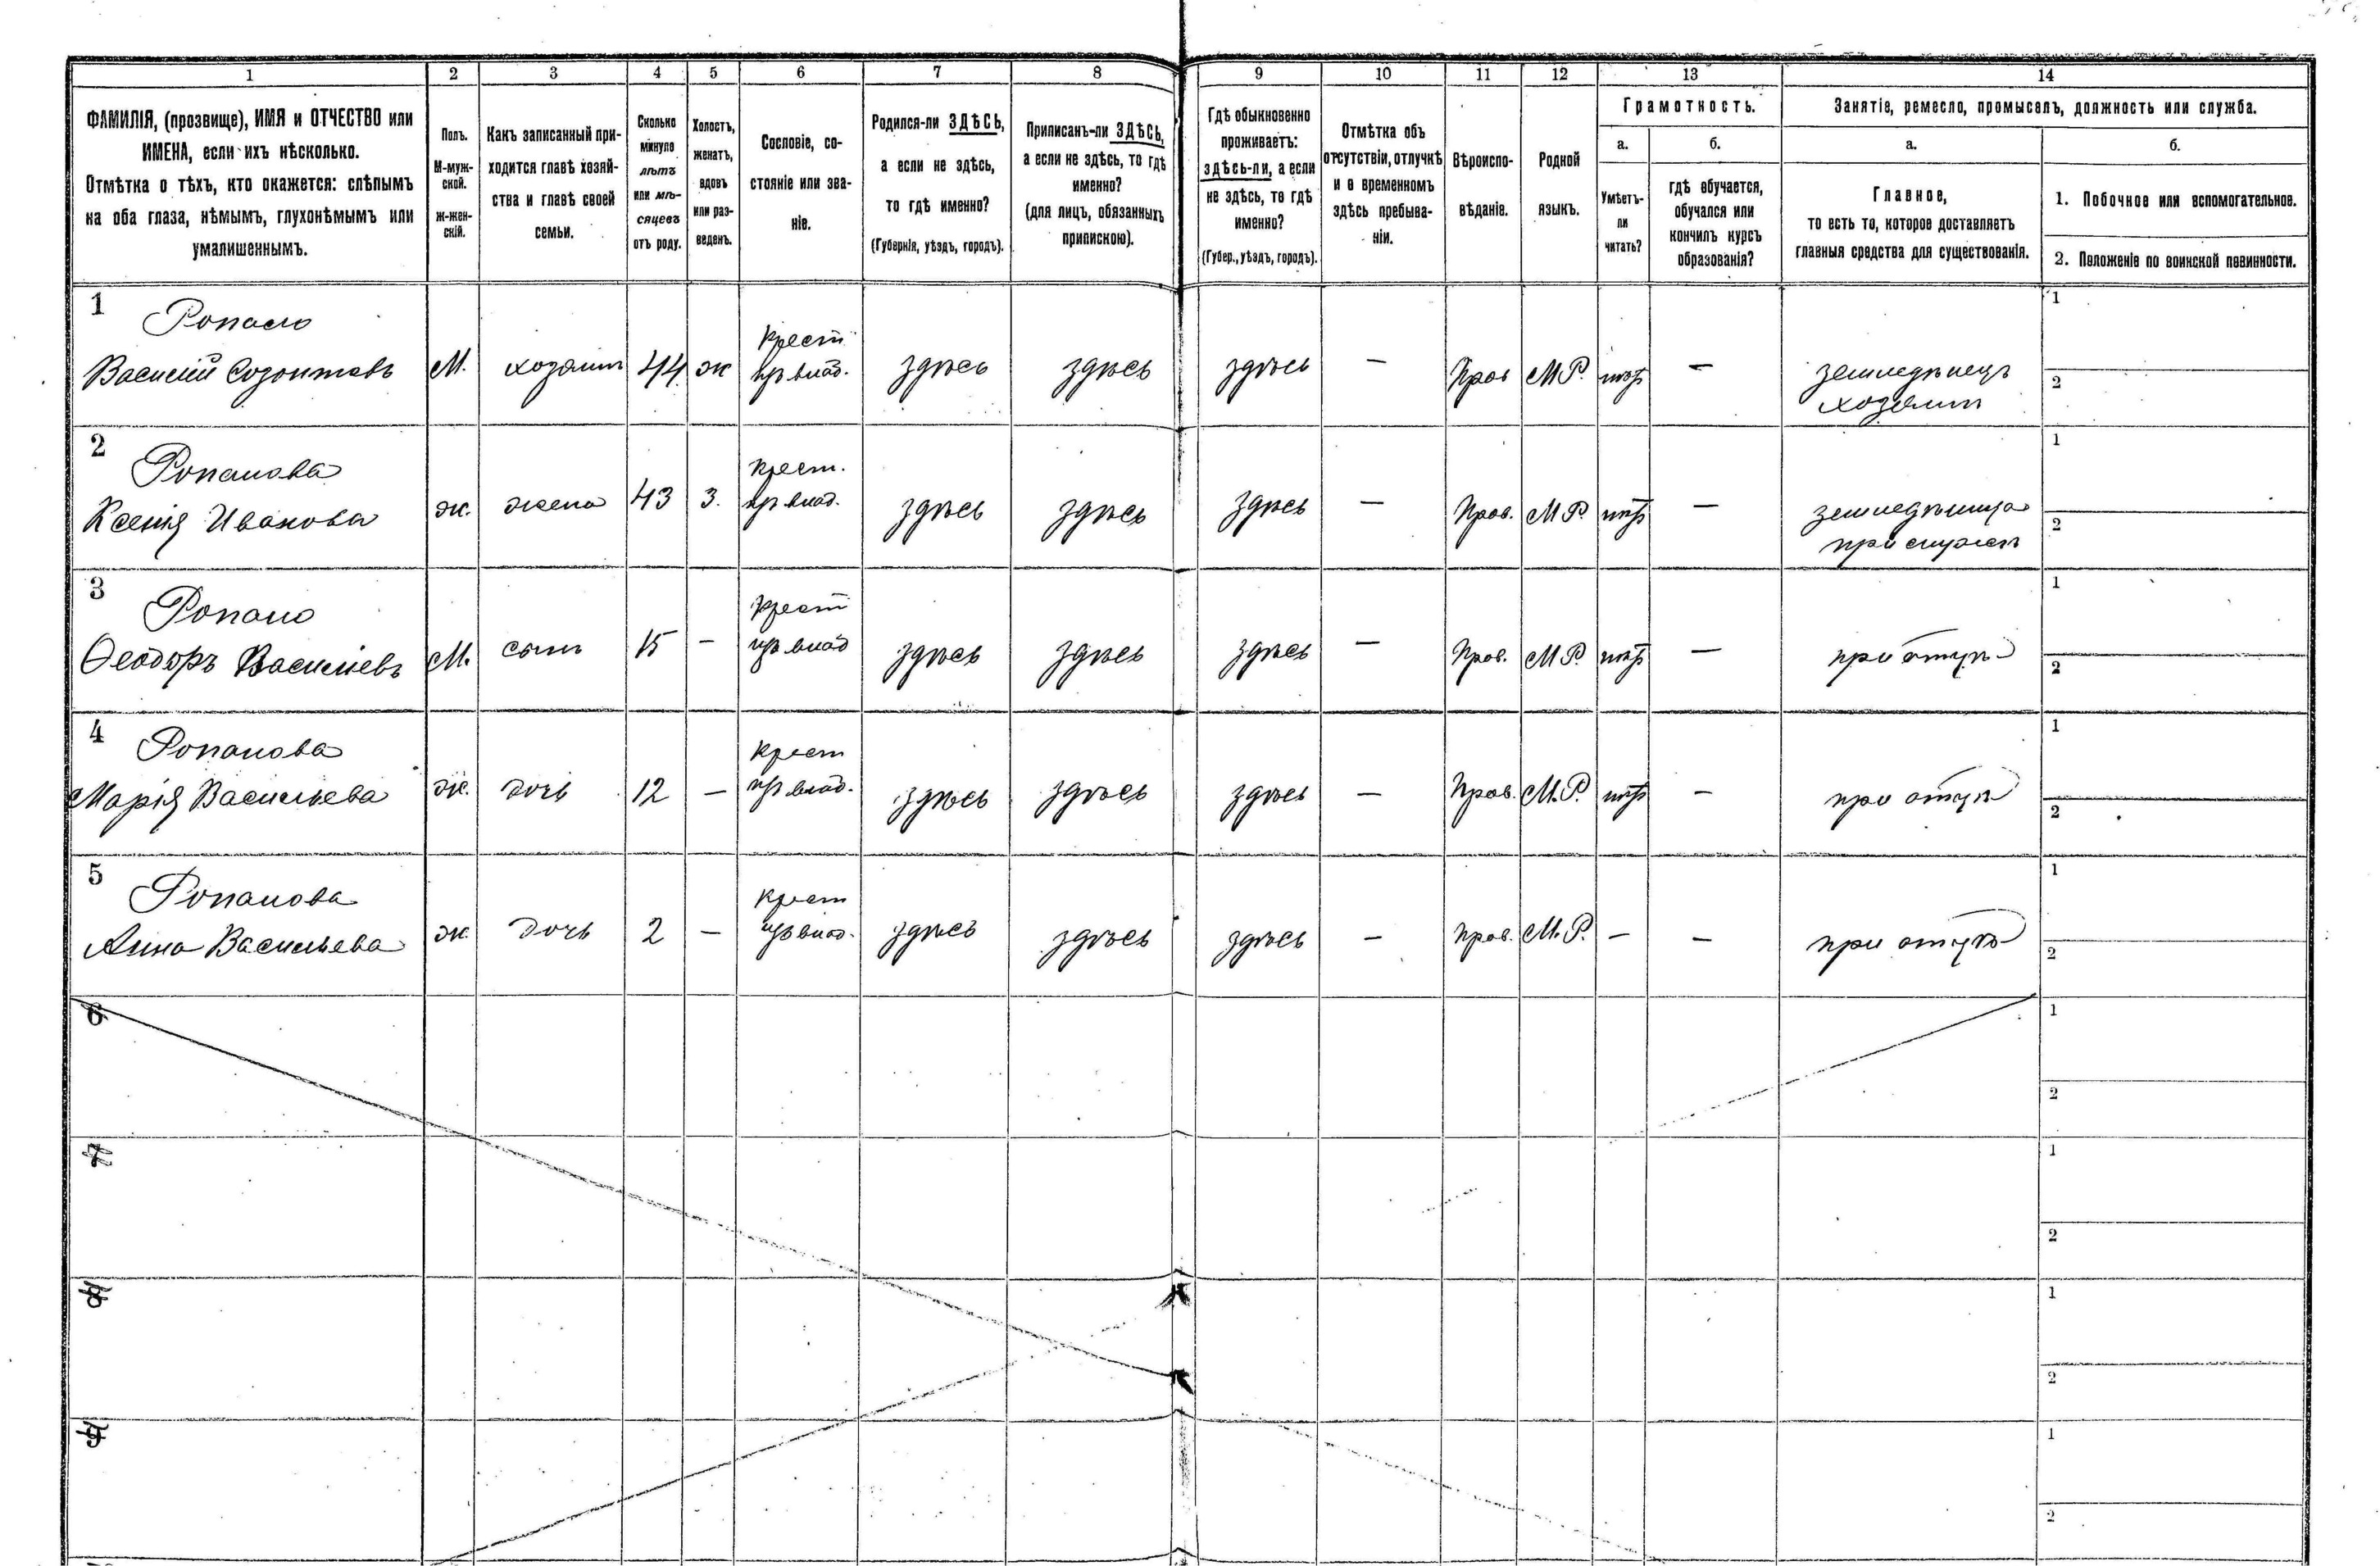 1
2
3
4
5
6
7
8
9
10
11
12
13
14
ФАМИЛІЯ, (прозвище), ИМЯ и ОТЧЕСТВО или
ИМЕНА, если ихъ нѣсколько.
Отмѣтка о тѣхъ, кто окажется: слѣпымъ
на оба глаза, нѣмымъ, глухонѣмымъ или
умалишеннымъ.
Полъ.
М-муж-
ской.
Ж-жен-
скій.
Какъ записанный при-
ходится главѣ хозяй-
ства и главѣ своей
семьи.
Сколько
минуло
лѣтъ
или мѣ-
сяцевъ
отъ роду.
Холостъ,
женатъ,
вдовъ
или раз-
веденъ.
Сословіе, со-
стояніе или зва-
ніе.
Родился-ли ЗДѢСЬ,
а если не здѣсь,
то гдѣ именно?
(Губернія, уѣздъ, городъ).
Приписанъ-ли ЗДѢСЬ,
а если не здѣсь, то гдѣ
именно?
(для лицъ, обязанныхъ
припискою).
Гдѣ обыкновенно
проживаетъ:
здѣсь-ли, а если
не здѣсь, то гдѣ
именно?
(Губер., уѣздъ, городъ).
Отмѣтка объ
отсутствіи, отлучкѣ
и о временномъ
здѣсь пребыва-
ніи.
Вѣроиспо-
вѣданіе.
Родной
языкъ.
Грамотность.
а.
Умѣетъ-
ли
читать?
б.
гдѣ обучается,
обучался или
кончилъ курсъ
образованія?
Занятіе, ремесло, промыселъ, должность или служба.
а.
Главное,
то есть то, которое доставляетъ
главныя средства для существованія.
б.
1. Побочное или вспомогательное.
2. Положеніе по воинской повинности.
1
Василій Созонтовъ
М.
хозяинъ
44
ж
Крест
здѣсь
здѣсь
здѣсь
—
Прав
М.Р.
нѣт
—
земледѣлецъ
хозяинъ
1
2
2
Ропанова
Ксенія Иванова
ж.
жена
43
З.
крест.
здѣсь
здѣсь
здѣсь
—
Прав.
М.Р.
нѣт
—
1
2
3
Ѳеодоръ Василіевъ
М.
сынъ
15
—
крест
здѣсь
здѣсь
здѣсь
—
Прав.
М.Р.
нѣт
—
при отцѣ
1
2
4
Ропанова
Марія Васильева
ж.
дочь
12
—
крест
здѣсь
здѣсь
здѣсь
—
Прав.
М.Р.
нѣт
—
при отцѣ
1
2
5
Ропанова
Анна Васильева
ж.
дочь
2
—
крест
здѣсь
здѣсь
здѣсь
—
прав.
М.Р.
—
—
при отцѣ
1
2
6
1
2
7
1
2
8
1
2
9
1
2